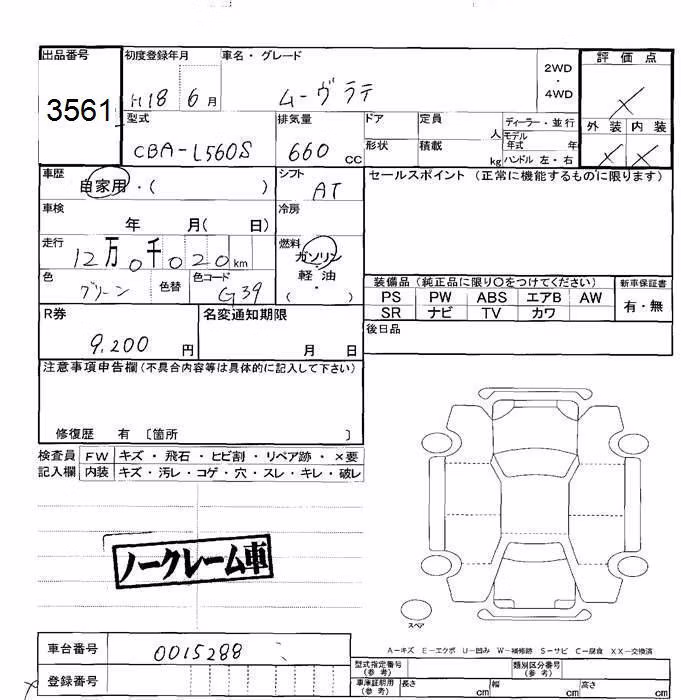 出品番号 初度登録年月 車名・グレード 2WD・4WD 評価点
3561 H18 6月 ムーヴラテ ×
型式 排気量 ドア 定員 人 ディーラー・並行 外装 内装
CBA-L560S 660cc 形状 積載 kg モデル年式 年 ハンドル 左・右 × ×
車歴 自家用・( ) シフト AT セールスポイント (正常に機能するものに限ります)
車検 年 月( 日) 冷房
走行 12万0千020km 燃料 ガソリン・軽油・( )
色 グリーン 色替 色コード G39
装備品 (純正品に限り○をつけてください) 新車保証書
PS PW ABS エアB AW 有・無
SR ナビ TV カワ
R券 9,200円 名変通知期限 月 日 後日品
注意事項申告欄 (不具合内容等は具体的に記入して下さい)
修復歴 有 〔箇所 〕
検査員 FW キズ・飛石・ヒビ割・リペア跡・×要
記入欄 内装 キズ・汚レ・コゲ・穴・スレ・キレ・破レ
ノークレーム車
スペア
A-キズ E-エクボ U-凹み W-補修跡 S-サビ C-腐食 XX-交換済
車台番号 0015288 型式指定番号 (参考) 類別区分番号 (参考)
登録番号 車庫証明用 (参考) 長さ cm 幅 cm 高さ cm